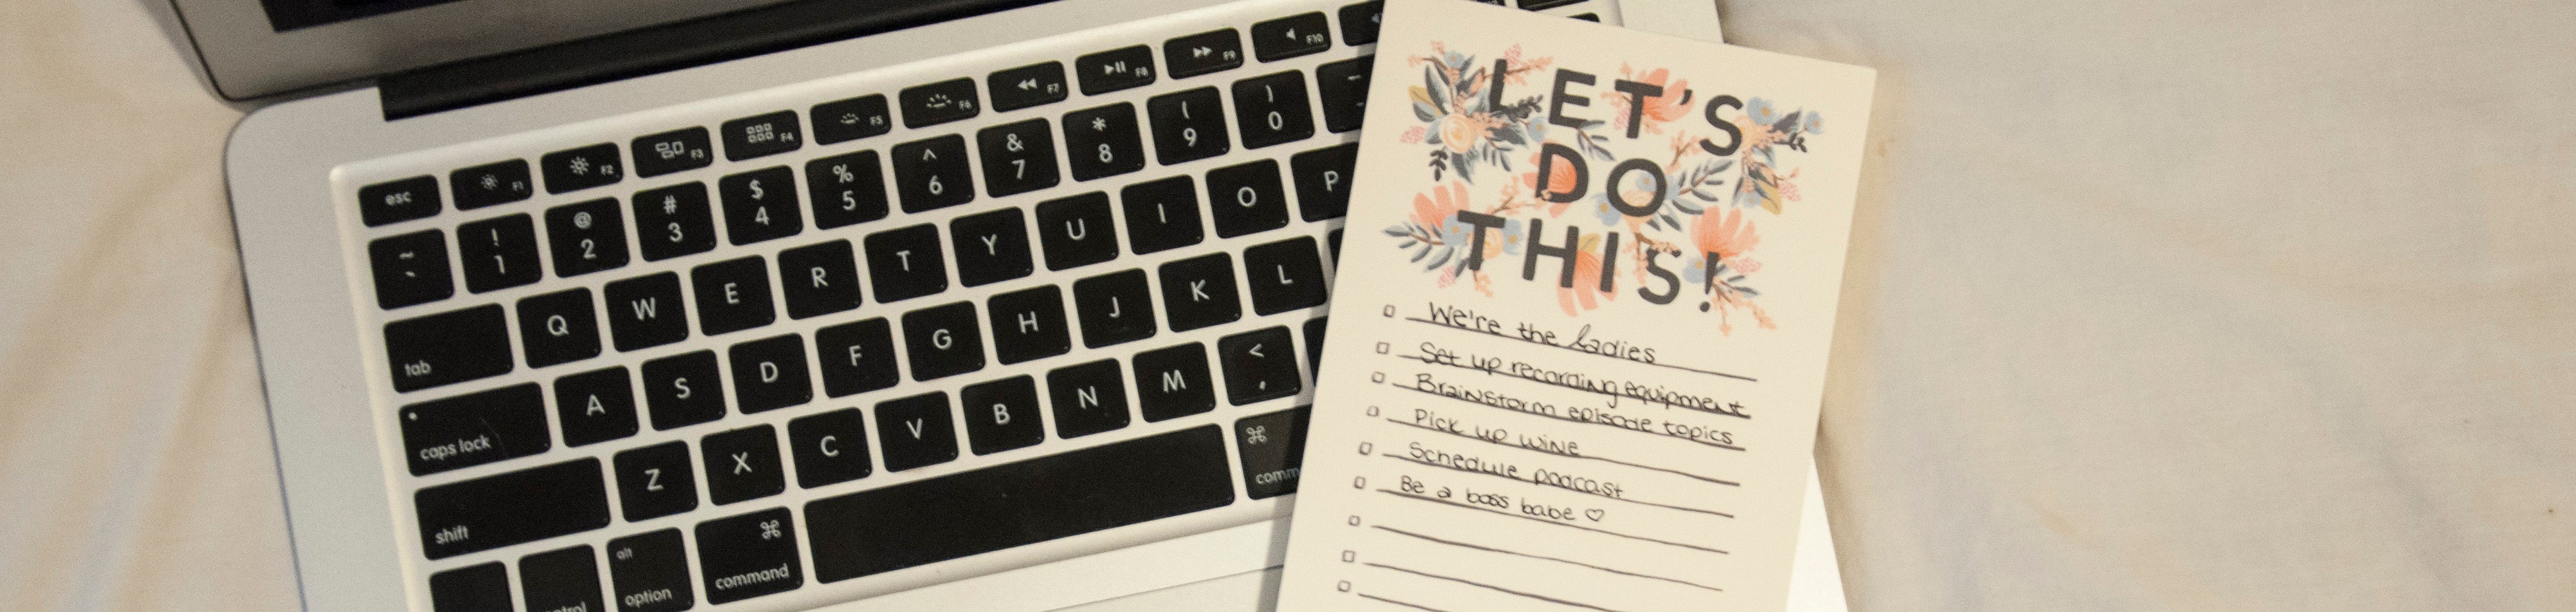 esc F1 F2 F3 F4 F5 F6 F7 F8 F9 F10
~ ` ! 1 @ 2 # 3 $ 4 % 5 ^ 6 & 7 * 8 ( 9 ) 0
tab Q W E R T Y U I O P
caps lock A S D F G H J K L
shift Z X C V B N M < ,
alt option ⌘ command ⌘
LET'S
DO
THIS!
We're the ladies
Set up recording equipment
Brainstorm episode topics
Pick up wine
Schedule podcast
Be a boss babe ♡